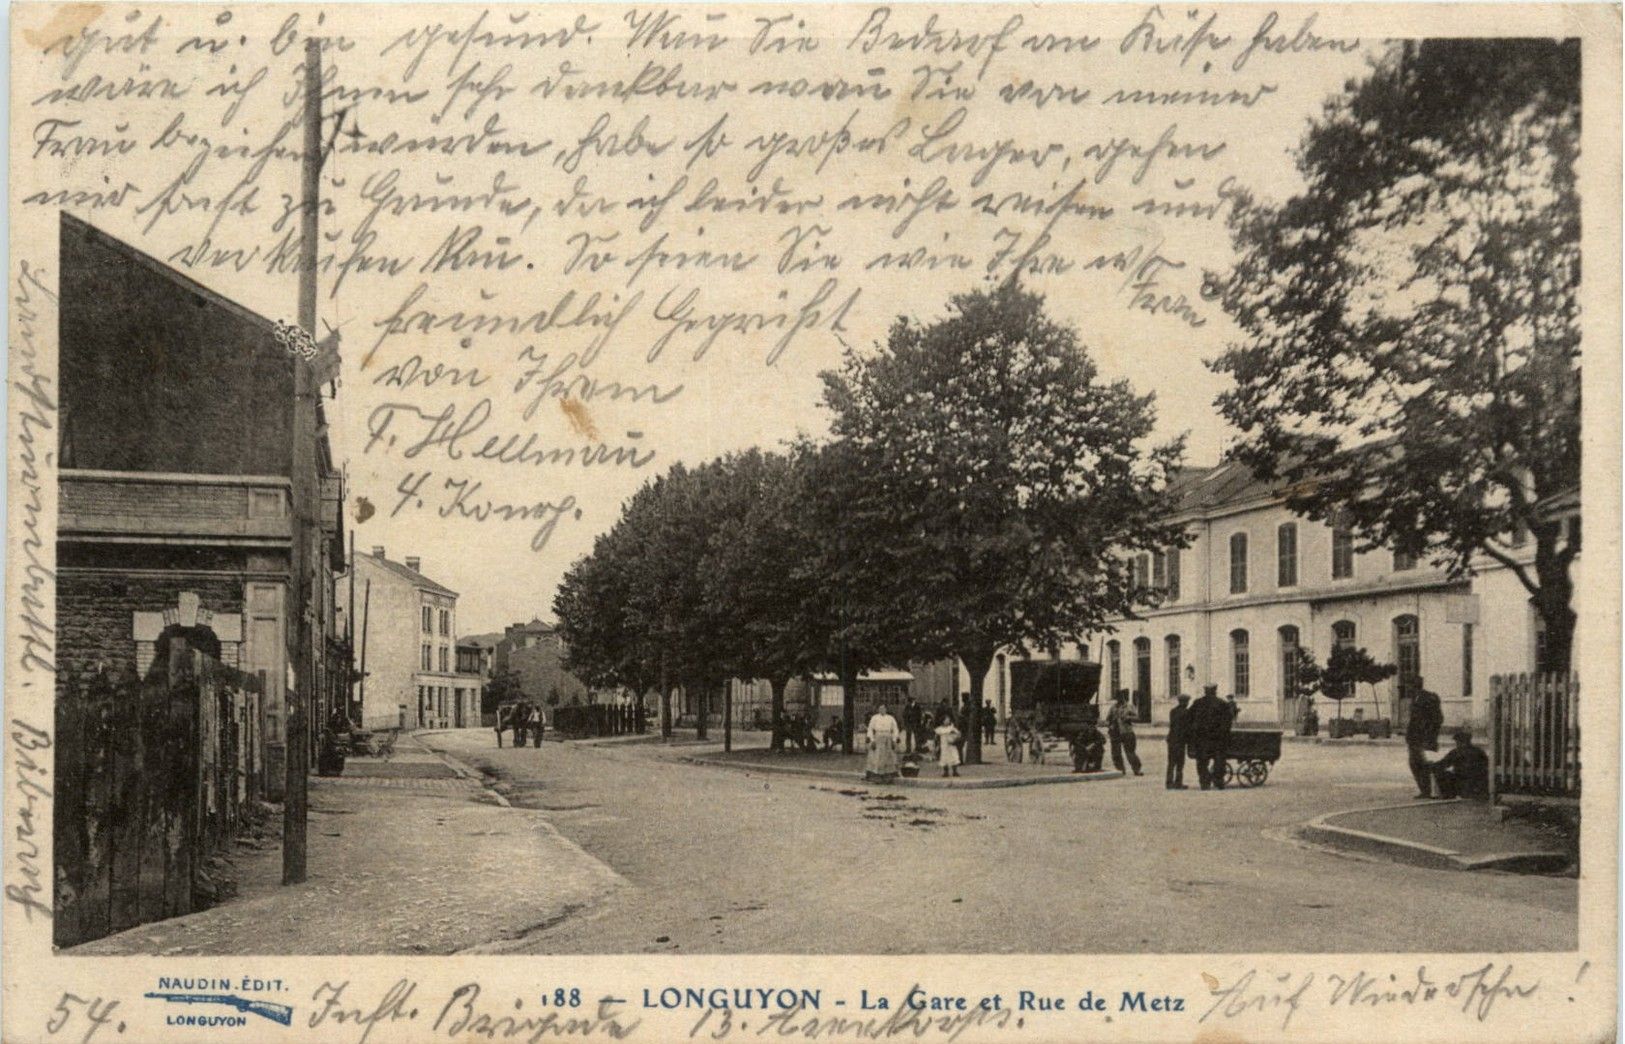 gut u. bin gesund. Wan̄ Sie Bedarf an Käse haben
wäre ich Ihnen sehr dankbar wan̄ Sie von meiner
Frau beziehen würden, habe so großes Lager, gehen
mir sonst zu Grunde, da ich leider nicht reisen und
verkaufen kan̄. So seien Sie wie Ihre w/
Frau
freundlich Gegrüßt
von Ihrem
F. Hellman̄
4. Komp.
54. Inft. Brigade 13. Armekorps.
Auf Wiedersehn!
NAUDIN-ÉDIT.
LONGUYON
188 — LONGUYON - La Gare et Rue de Metz